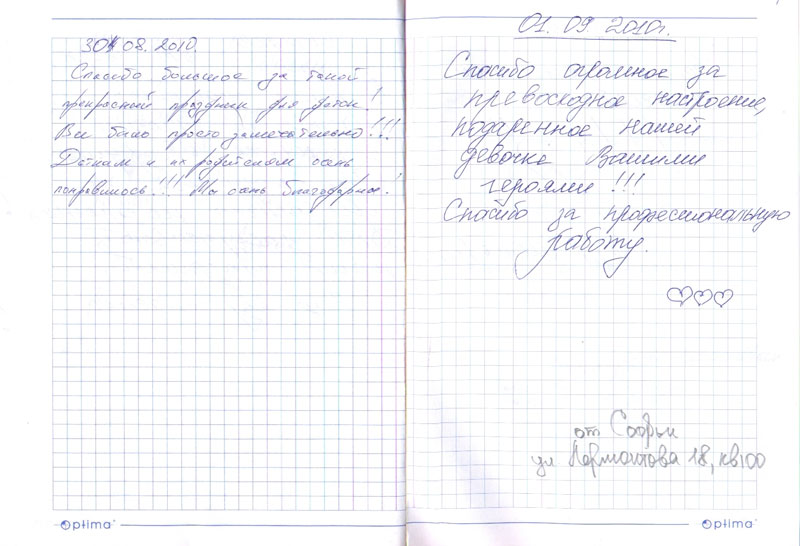 30 08. 2010.
Спасибо большое за такой
прекрасный праздник для деток!
Все было просто замечательно!!!
Деткам и их родителям очень
понравилось!!! Мы очень благодарны!
optima
01. 09 2010г.
Спасибо огромное за
превосходное настроение,
подаренное нашей
девочке Вашими
героями!!!
Спасибо за профессиональную
работу.
от Софьи
ул Лермонтова 18, кв100
optima